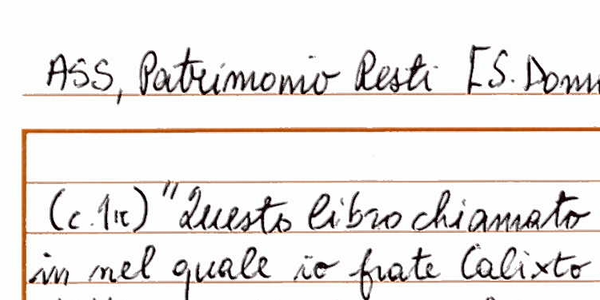 ASS, Patrimonio Resti [S. Dom
(c. 1r) "Questo libro chiamato
in nel quale io frate Calixto